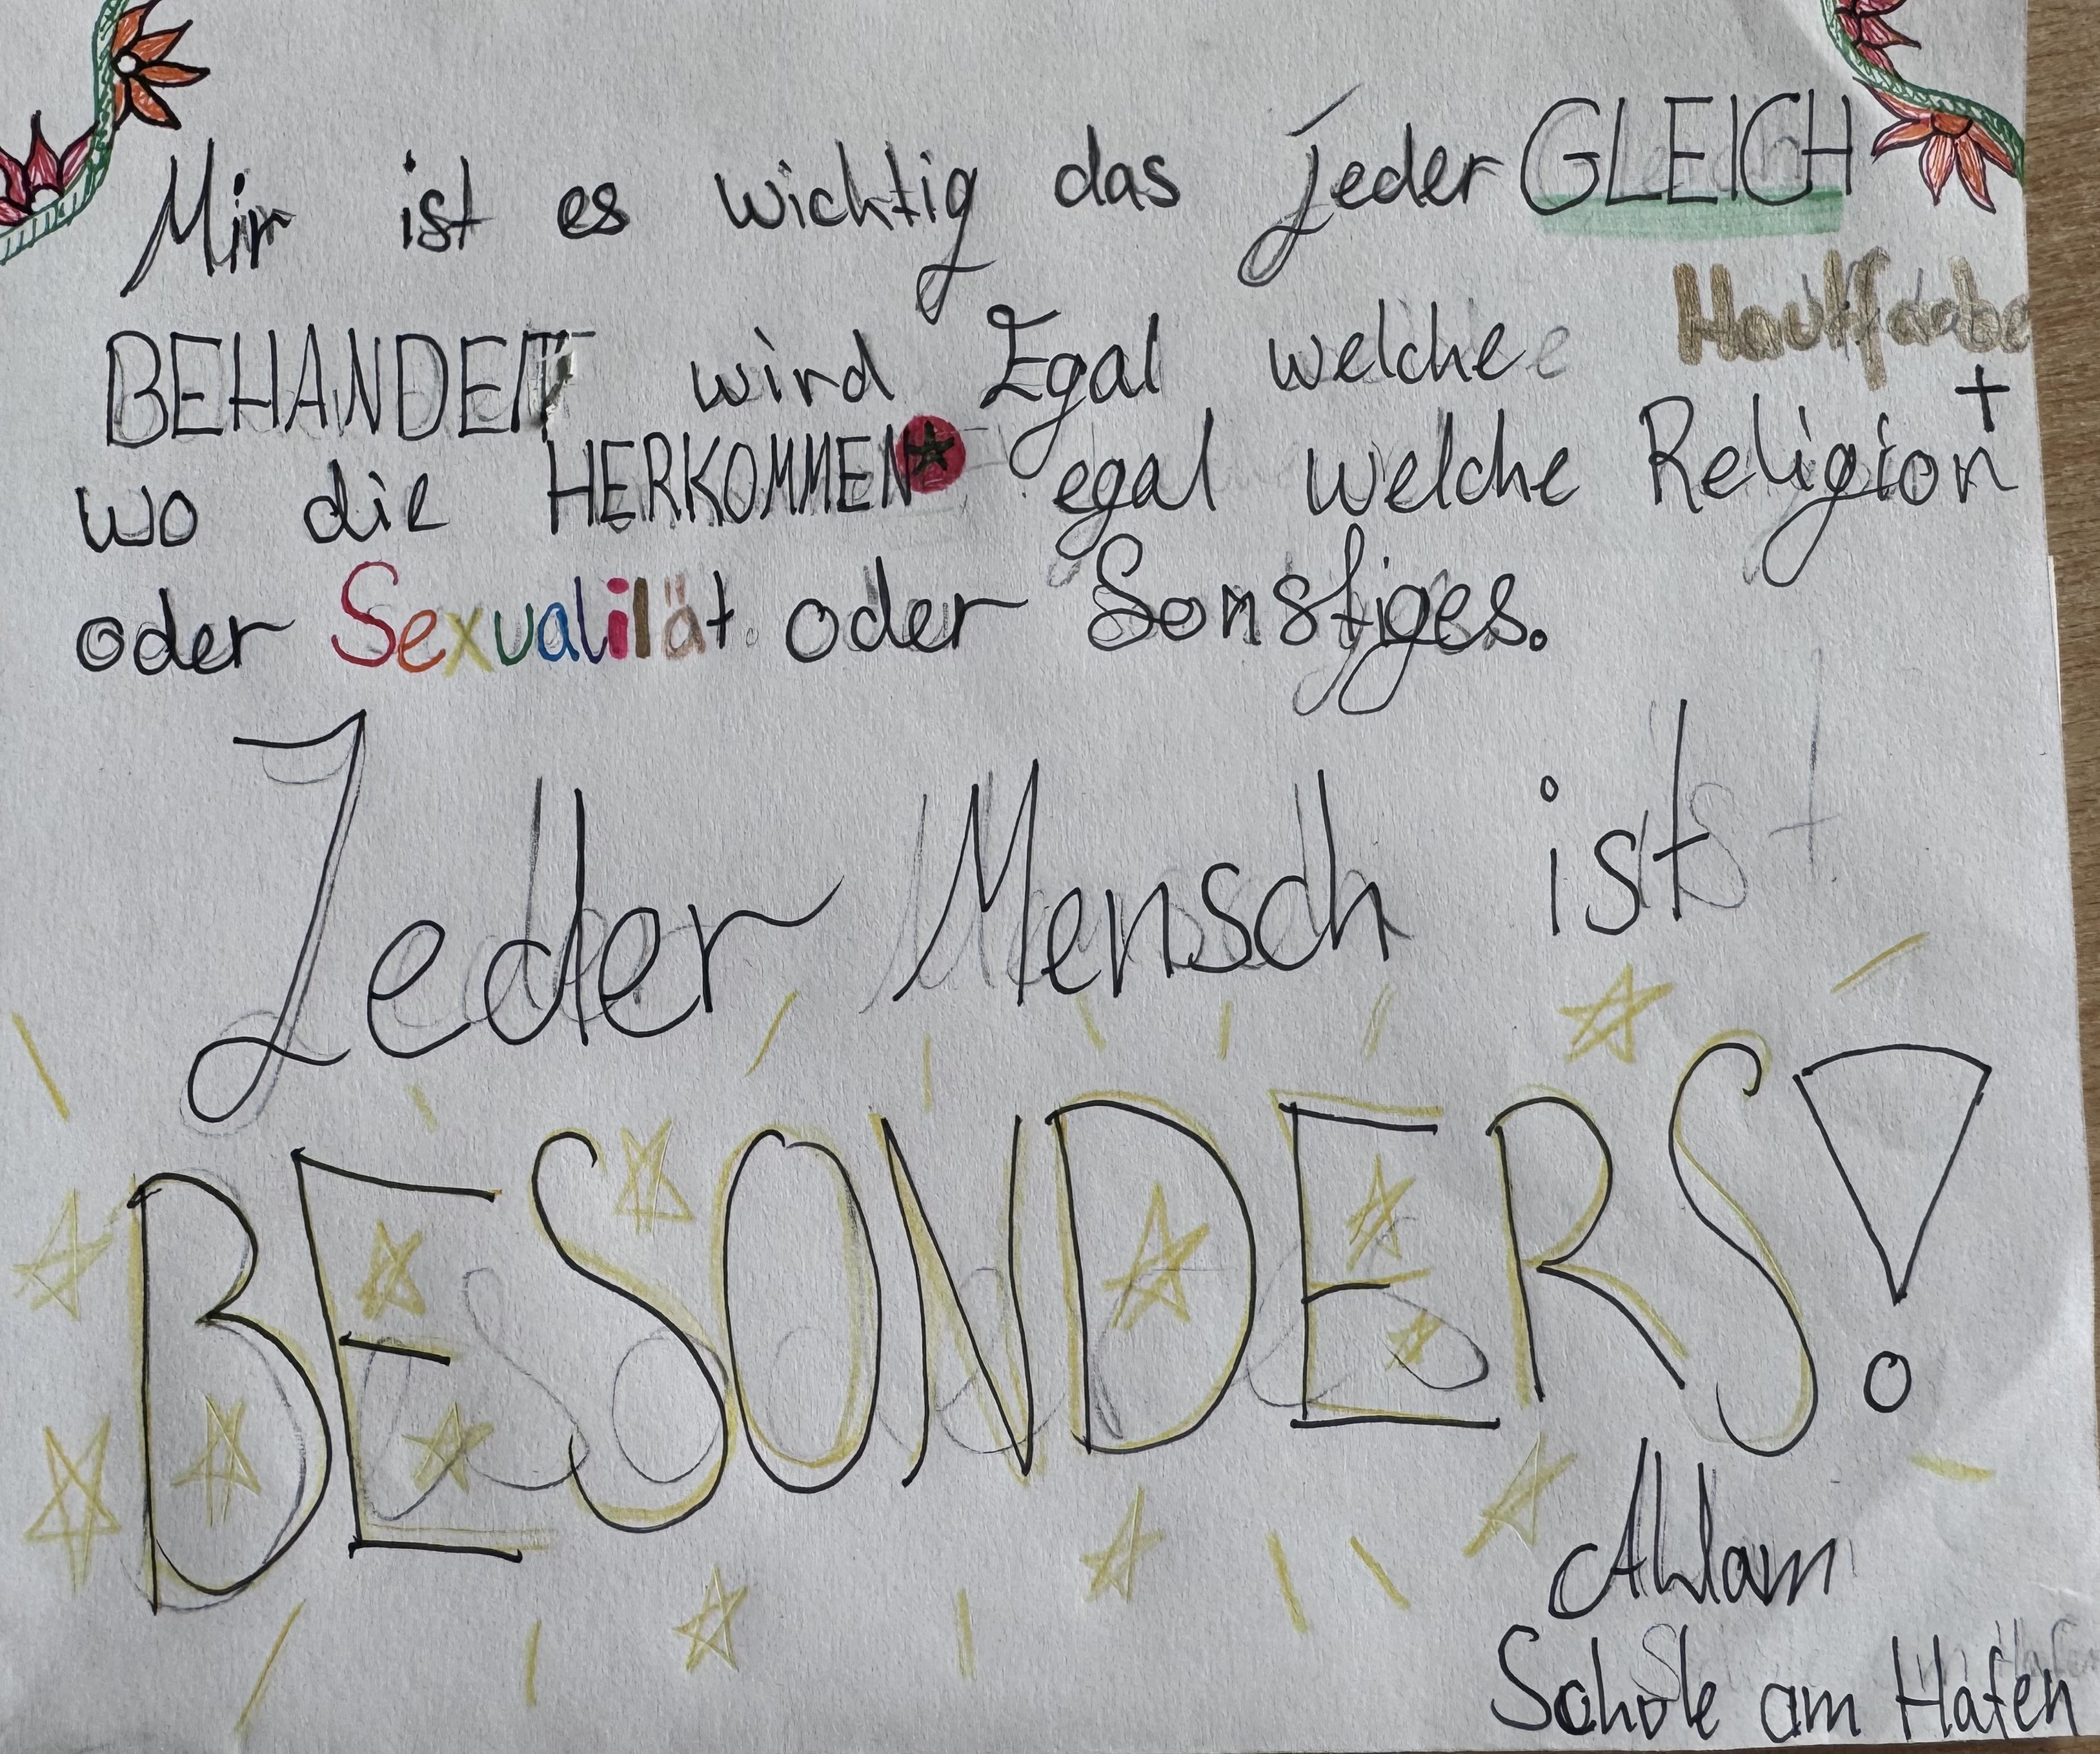 Mir ist es wichtig das jeder GLEICH
BEHANDELT wird Egal welche Hautfarbe
wo die HERKOMMEN egal welche Religion
oder Sexualität oder Sonstiges.
Jeder Mensch ist
BESONDERS!
Ahlam
Schule am Hafen